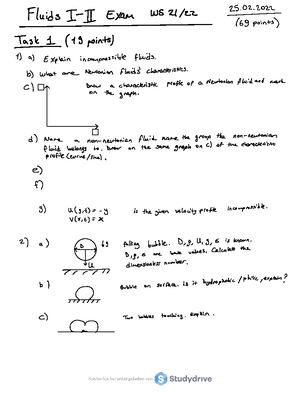 Fluids I-II Exam WS 21/22
25.02.2022
(69 points)
Task 1 (19 points)
1) a) Explain incompressible fluids.
b) What are Newtonian fluids characteristics.
c) Draw a characteristic profile of a Newtonian fluid and mark
on the graph.
d) Name a non-newtonian fluid name the group the non-newtonian
fluid belongs to. Draw on the same graph on c) of the characteristic
profile (curve/line).
e)
f)
g) U(y,t) = -y is the given velocity profile incompressible.
V(x,t) = x
2) a) D U falling bubble. D, g, U, ρ, is known.
D, g, are base values. Calculate the
dimensionless number.
b) Bubble on surface. is is hydrophobic/philic, explain?
c) Two bubbles touching. Explain.
heruntergeladen von Studydrive